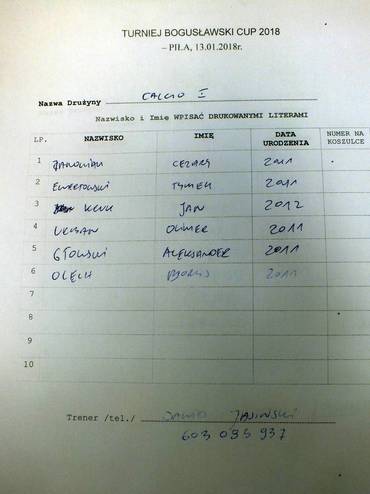 TURNIEJ BOGUSŁAWSKI CUP 2018
– PIŁA, 13.01.2018r.
Nazwa Drużyny CALCIO I
Nazwisko i Imię WPISAĆ DRUKOWANYMI LITERAMI
LP. NAZWISKO IMIĘ DATA URODZENIA NUMER NA KOSZULCE
1 CEZARY 2011
2 TYMEK 2011
3 KLUK JAN 2012
4 URBAN OLIWER 2011
5 GŁOWSKI ALEKSANDER 2011
6 OLECH BORYS 2011
7
8
9
10
Trener /tel./ DAWID JASIŃSKI
603 093 937